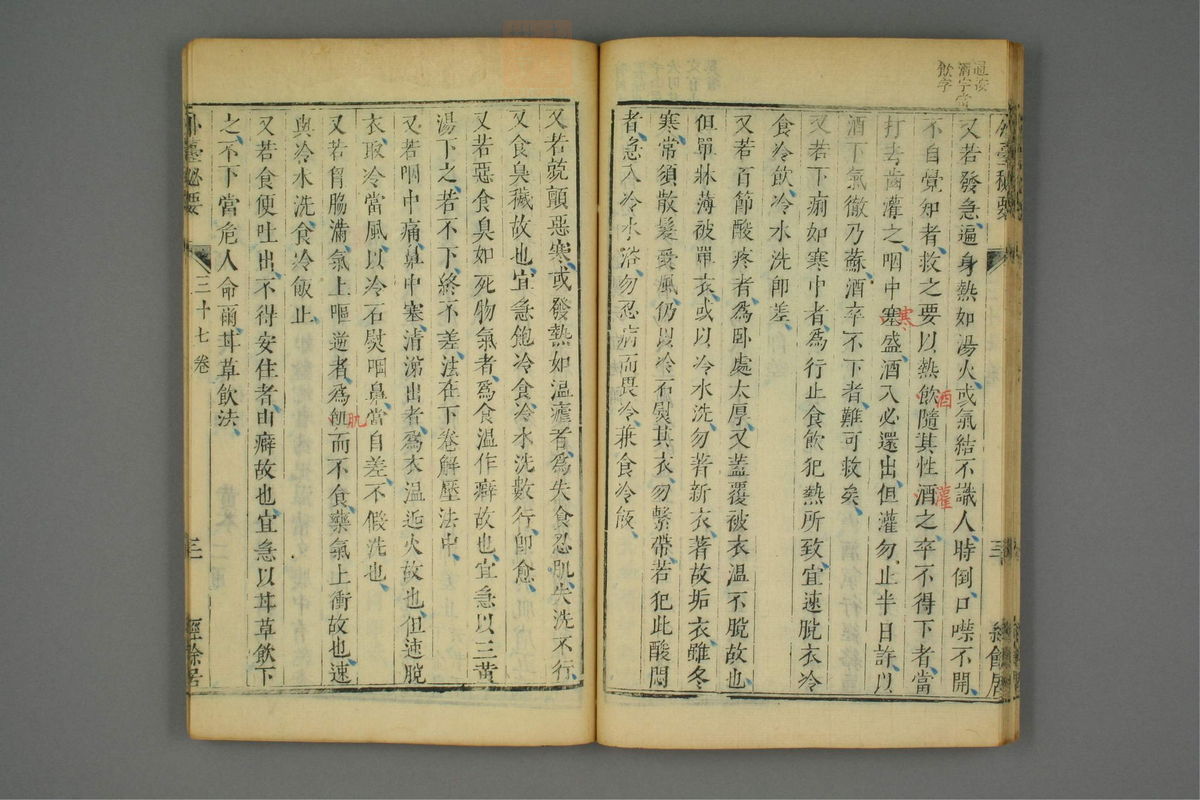 逗按
酒字當
飲字
外臺秘要
三
經餘居
又若發急、遍身熱如湯火、或氣結不識人、時倒、口噤不開、
不自覺知者、救之要以熱飲隨其性、酒之、卒不得下者、當
酒
灌
打去齒灌之、咽中塞盛、酒入必還出、但灌勿止、半日許、以
寒
酒下氣徹乃蘇、酒卒不下者、難可救矣、
又若下痢如寒中者、爲行止食飲犯熱所致、宜速脫衣冷
食冷飲、冷水洗卽差、
又若百節酸疼者、爲臥處太厚、又蓋覆被衣溫不脫故也、
但單牀薄被單衣、或以冷水洗、勿著新衣、著故垢衣、雖冬
寒、常須散髮受風、仍以冷石熨其衣、勿繫帶、若犯此酸悶
者、急入冷水浴、勿忍病而畏冷、兼食冷飯、
又若兢顫惡寒、或發熱如溫瘧者、爲失食忍肌、失洗不行、
又食臭穢故也、宜急飽冷食、冷水洗數行、卽愈、
又若惡食臭如死物氣者、爲食溫作癖故也、宜急以三黃
湯下之、若不下終不差、法在下卷解壓法中、
又若咽中痛、鼻中寒、清涕出者、爲衣溫近火故也、但速脫
衣、取冷當風、以冷石熨咽鼻、當自差、不假洗也、
又若胷脇滿、氣上嘔逆者、爲飢而不食、藥氣上衝故也、速
肌
與冷水洗、食冷飯止
又若食便吐出、不得安住者、由癖故也、宜急以茸草飲下
之、不下當危人命爾、茸草飲法、
外臺秘要
三十七卷
三
經餘居